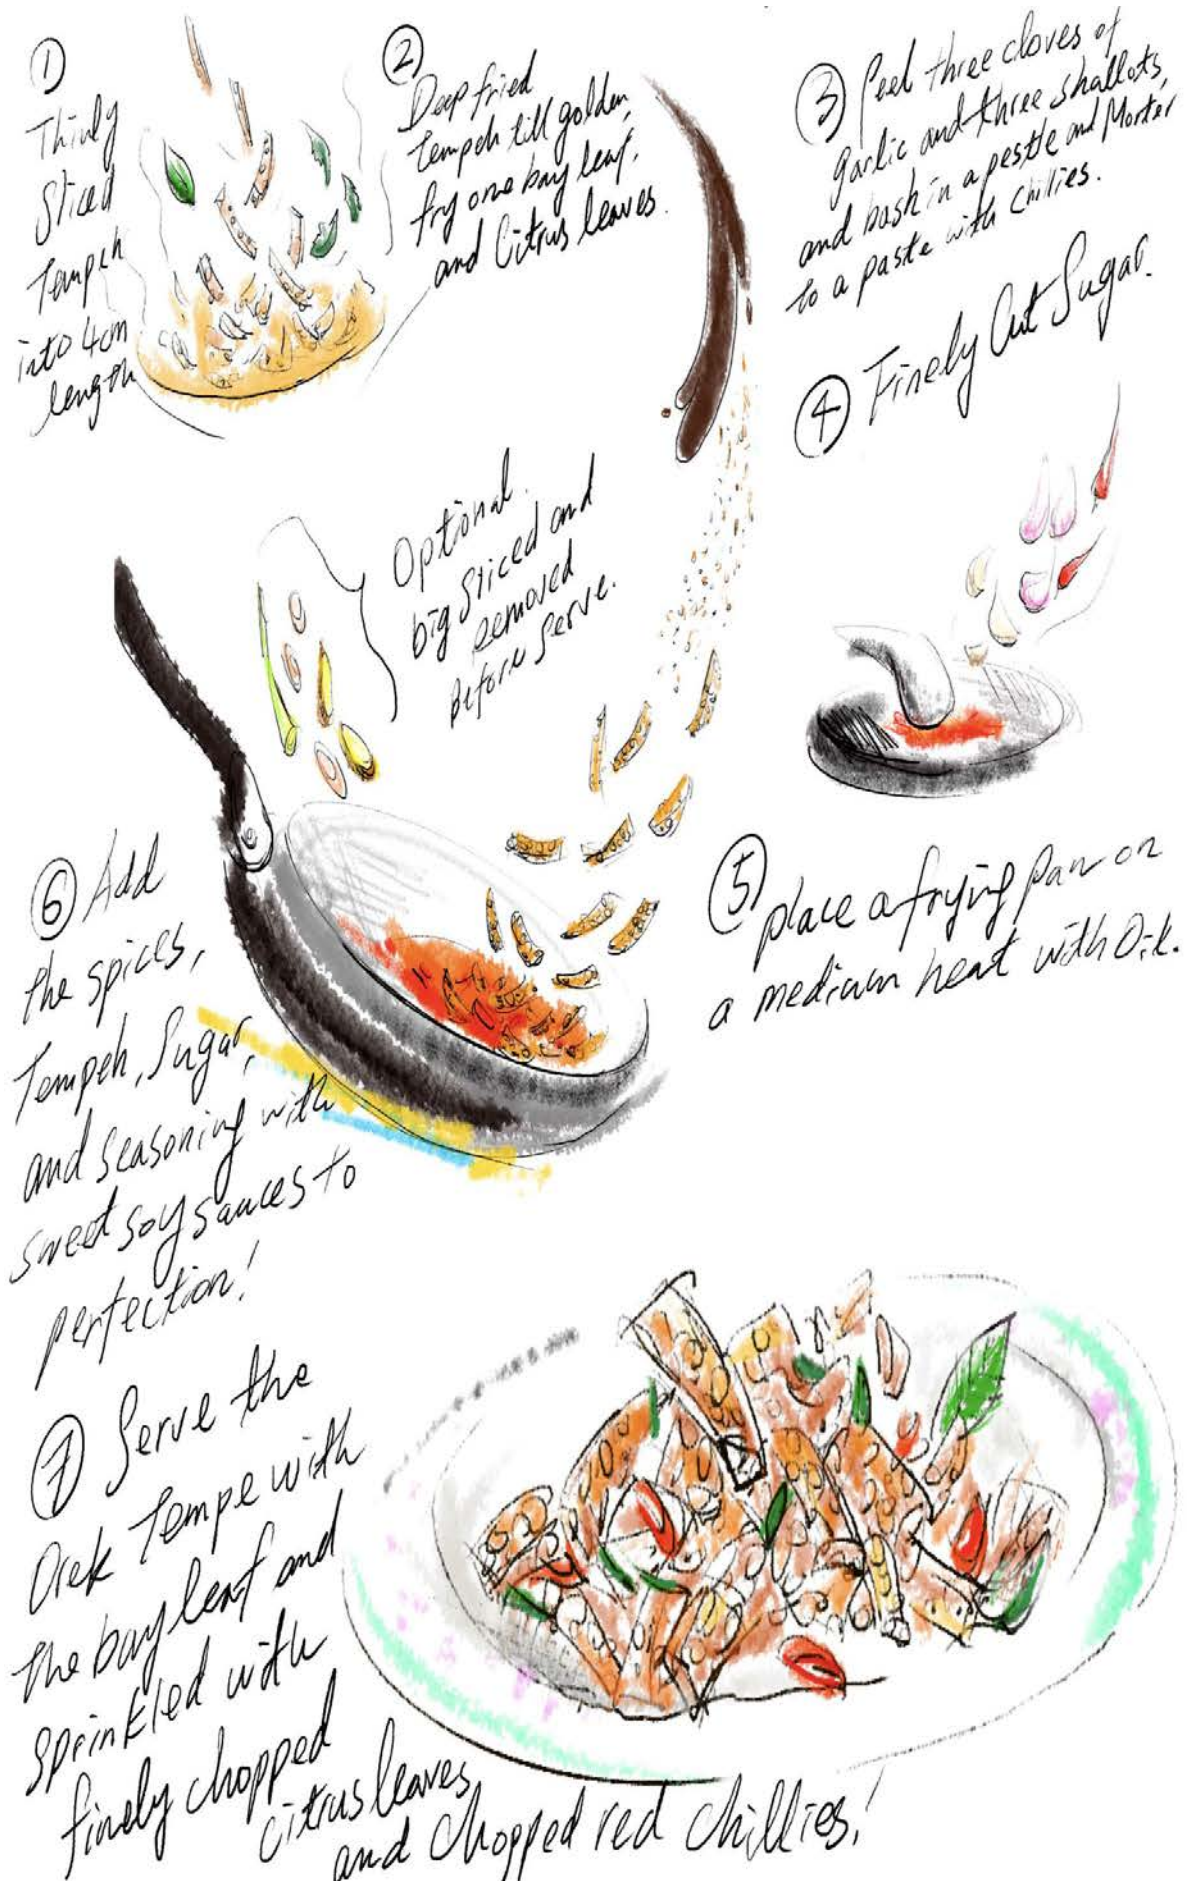 ①
Thinly
Sliced
Tempeh
into 4cm
length
②
Deep fried
tempeh till golden,
fry one bay leaf,
and Citrus leaves.
③ Peel three cloves of
garlic and three shallots,
and bash in a pestle and Morter
to a paste with chillies.
④ Finely Cut Sugar.
Optional.
big Sliced and
removed
Before Serve.
⑤ place a frying Pan on
a medium heat with Oil.
⑥ Add
the spices,
Tempeh, Sugar,
and seasoning with
sweet soy sauces to
perfection!
⑦ Serve the
Orek Tempe with
the bay leaf and
Sprinkled with
finely chopped
citrus leaves,
and Chopped red chillies!